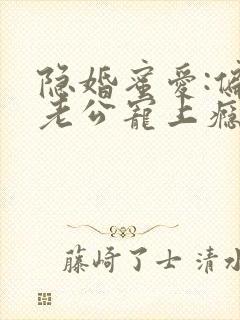 隐婚蜜爱:偏
老公宠上瘾
藤崎了士 清水